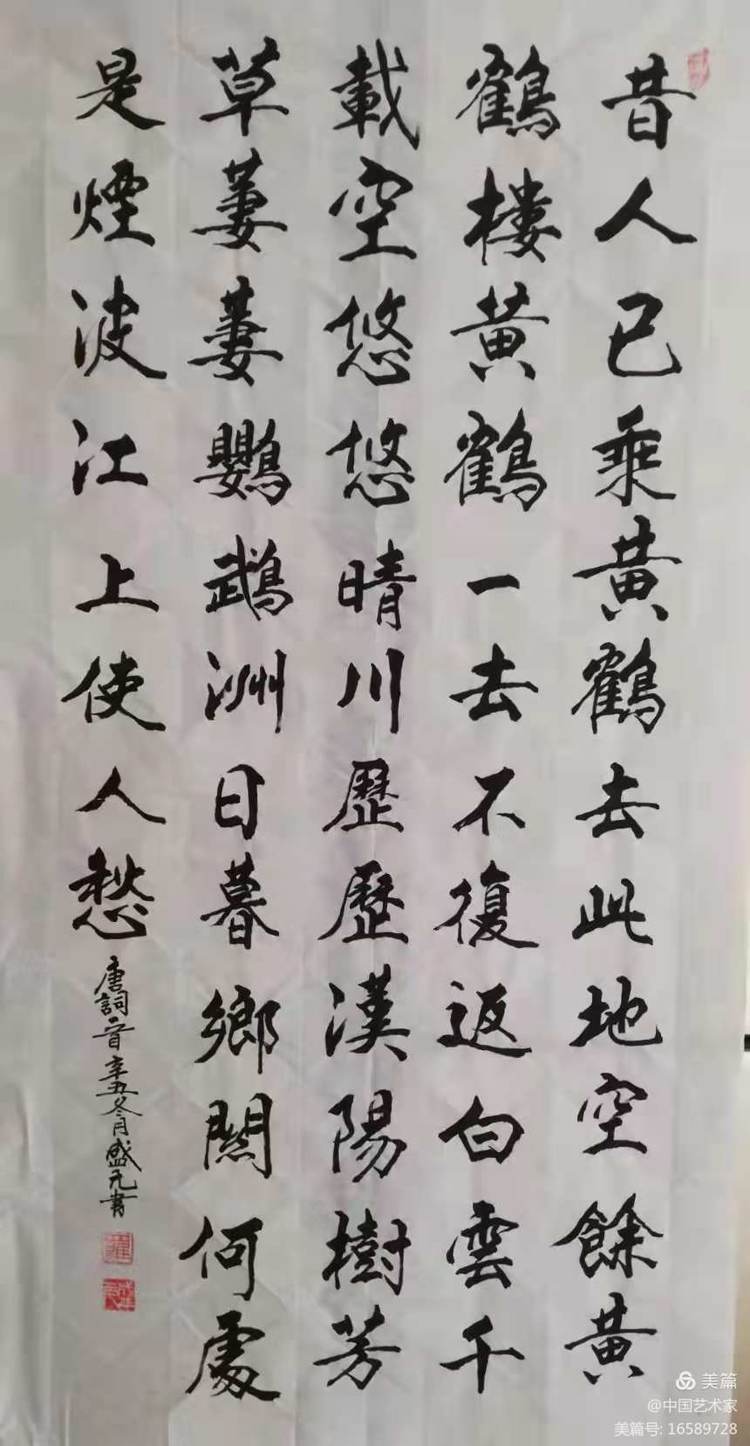 昔人已乘黃鶴去此地空餘黃
鶴樓黃鶴一去不復返白雲千
載空悠悠晴川歷歷漢陽樹芳
草萋萋鸚鵡洲日暮鄉關何處
是煙波江上使人愁
唐詞一首辛丑冬月盛元書
美篇
@中国艺术家
美篇号: 16589728